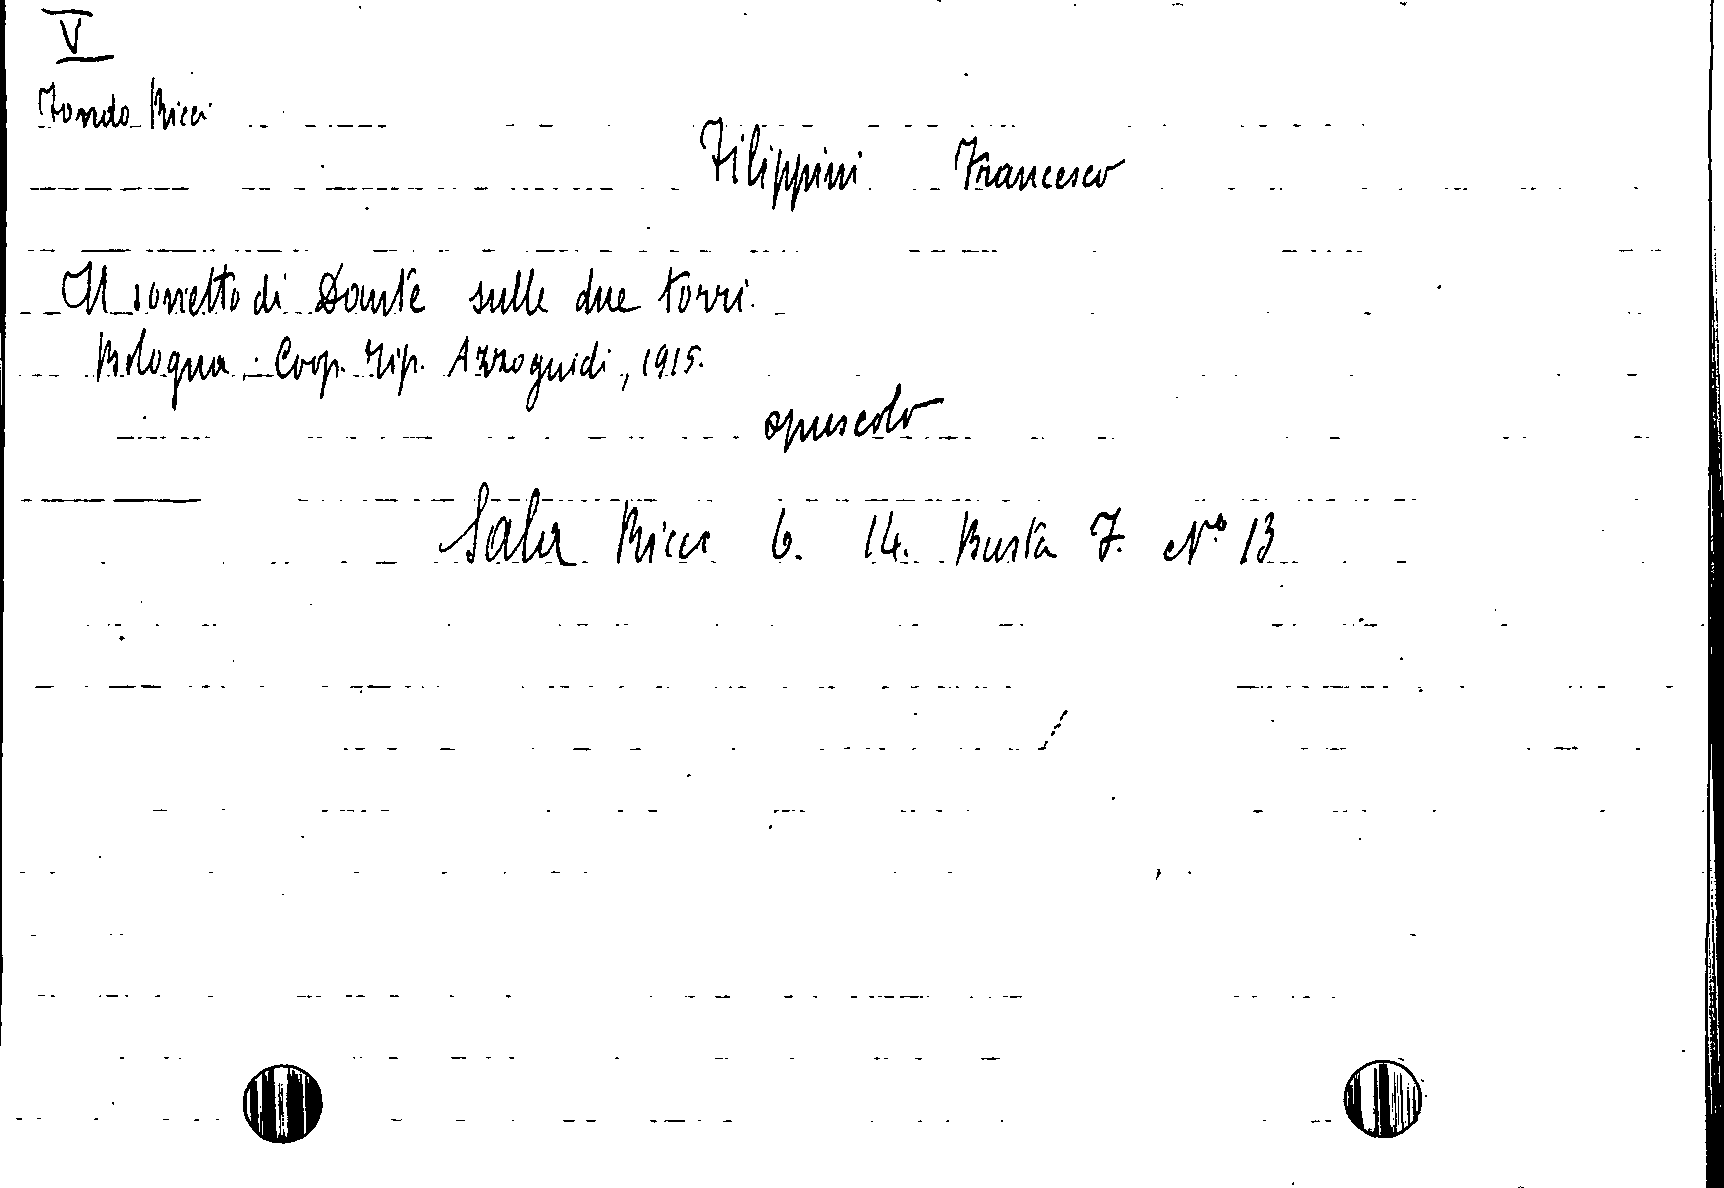 V
Fondo Ricci
Filippini Francesco
Il sonetto di Dante sulle due torri.
Bologna: Coop. tip. Azzoguidi, 1915.
opuscolo
Sala Ricci 6. 14. Busta F. Nº 13